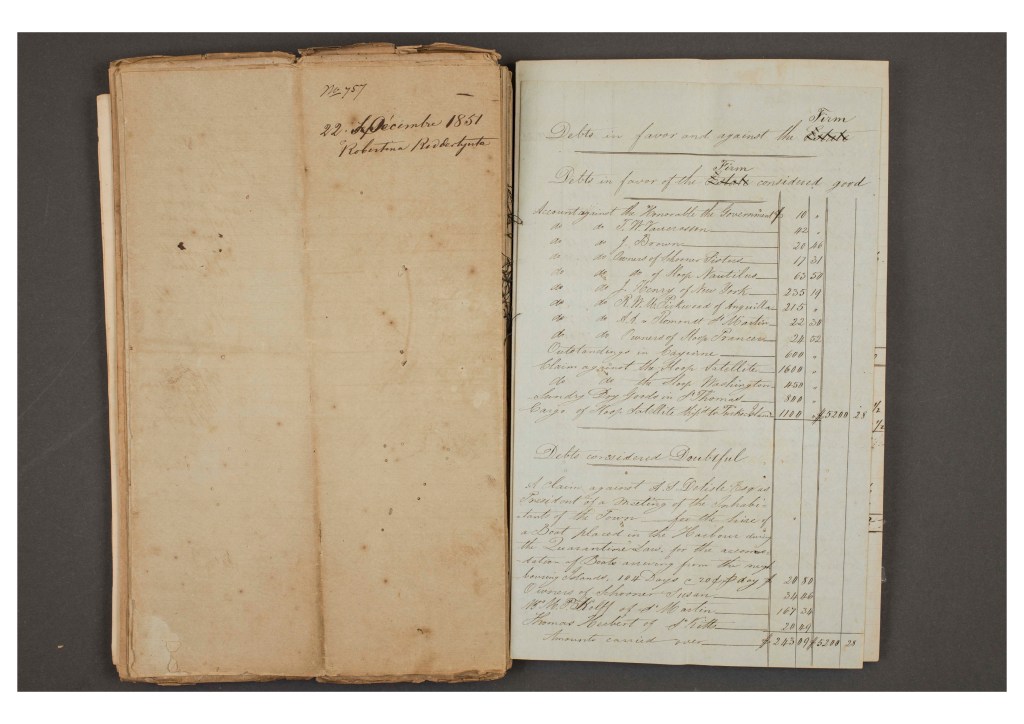 No 757
22 Décembre 1851
Robertina
Firm
Debts in favor and against the Estate
Firm
Debts in favor of the Estate considered good
Account against the Honorable the Government $ 10 "
do do T. W. 42 "
do do J. Brown 20 46
do do Owners of Schooner Sisters 17 31
do do do of Sloop Nautilus 63 50
do do J. Henry of New York 235 19
do do R. W. of Anguilla 215 "
do do St Martin 22 30
do do Owners of Sloop 24 52
Outstandings in Cayenne 600 "
Claim against the Sloop Satellite 1600 "
do do the Sloop Washington 450 "
Sundry Dry Goods in St Thomas 800 "
Cargo of Sloop Satellite to 1100 " $ 5200 28
Debts considered Doubtful
A Claim against A. S. Delisle Esq as
President of a Meeting of the Inhabi-
tants of the Town for the hire of
a Boat placed in the Harbour during
the Quarantine Law, for the accomo-
dation of Boats arriving from the neigh
bouring Islands. 104 Days a 20 ₵ day $ 20 80
Owners of Schooner Susan 34 06
Wm of St Martin 167 34
Thomas Herbert of St Kitts 20 49
Amounts carried over $ 243 09 $ 5200 28